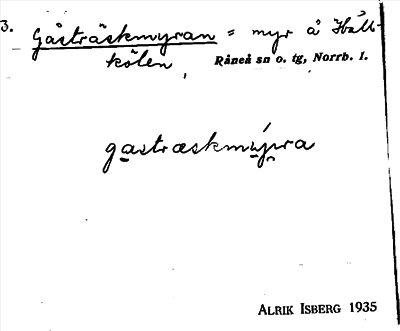 3. Gåsträskmyran = myr å Håll-
kölen, Råneå sn o. tg, Norrb. l.
gastræskmýra
ALRIK ISBERG 1935